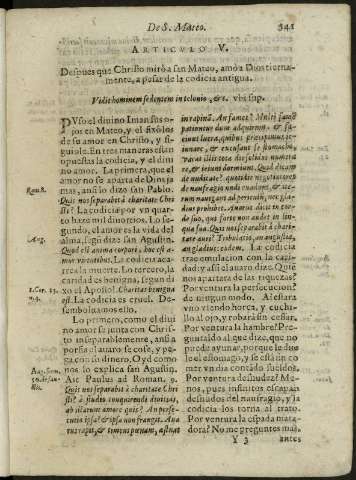 De S. Mateo.
341
ARTICULO V.
Despues que Christo mirò a san Mateo, amò a Dios tierna-
mente, a pesar de la codicia antigua.
Vidit hominem sedentem in telonio, &c. vbi sup.
PVso el diuino Iman sus o-
jos en Mateo, y el fixò los
de su amor en Christo, y si-
guiole. En tres maneras està
opuestas la codicia, y el diui
no amor. La primera, que el
amor no se aparta de Dios ja
mas, ansi lo dixo san Pablo.
Rom. 8.
Quis nos separabit à charitate Chri
sti? La codicia por vn quar-
to haze mil diuorcios. Lo se-
gundo, el amor es la vida del
alma, segũ dizo san Agustin.
Aug.
Quod est anima corpori, hoc est a-
mor virtutibus. La codicia aca-
rrea la muerte. Lo tercero, la
caridad es benigna, segun di-
xo el Apostol. Charitas benigna
1. Cor. 13.
n. 4.
est. La codicia es cruel. De-
semboluamos ello.
Lo primero, como el diui
no amor se junta con Chris-
to inseparablemente, ansi a
porfia el auaro se cose, y pe-
ga con su dinero. Oyd como
nos lo explica san Agustin.
Aug. Serm.
Ait Paulus ad Roman. 8.
Quis nos separabit à charitate Chri
sti? à studio conquirendi diuitias,
ab illarum amore quis? An perse-
cutio ipsa? & ipsa non frangit. Aua
rus rapit, & timens punam, astuat
in rapina. An fames? Multi sanctè
patiuntur dum adquirunt, & fa-
ciunt lucra, quibus precipiunt, ie-
iunare, & excusant se stomachi.
Varias illis tota die solidos numera
re, & ieiuni dormiunt. Quid dicam
de nuditate? quotidie negotiatores
de naufragio nudi euadunt, & ite-
rum nauigant ad periculum, nec gla-
dius prohibet. Amarus dicit in cor-
de suo, qui forte non audet in lin-
gua sua. Quis nos separabit à chari-
tate auri? Tribulatio, an angustia,
an gladius: eadem. La codicia
trae emulacion con la cari-
dad; y assi el auaro dize. Quiẽ
nos apartara de las riquezas?
Por ventura la persecucion?
de ningun modo. Al estàra
vno viendo horca, y cuchi-
llo al ojo, y robarà sin cessar.
Por ventura la hambre? Pre-
guntadlo al que dize, que no
puede ayunar, porque le due
le el estomago, y se estàra sin co
mer vn dia contado sueldos.
Por ventura desnudez? Me-
nos, pues infinitos escapan
desnudos del naufragio, y la
codicia los torna al trato.
Por ventura la espada mata-
dora? No me pregunteis mas.
Y 3
antes